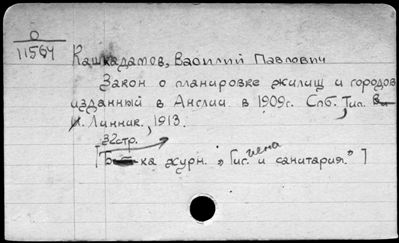 О
11564
Кашкадамов, Василий Павлович
Закон о планировке жилищ и городов
изданный в Англии в 1909г. Спб. Тип.
И. Линник, 1913.
32стр.
[Б-ка журн. „Гигиена и санитария."]